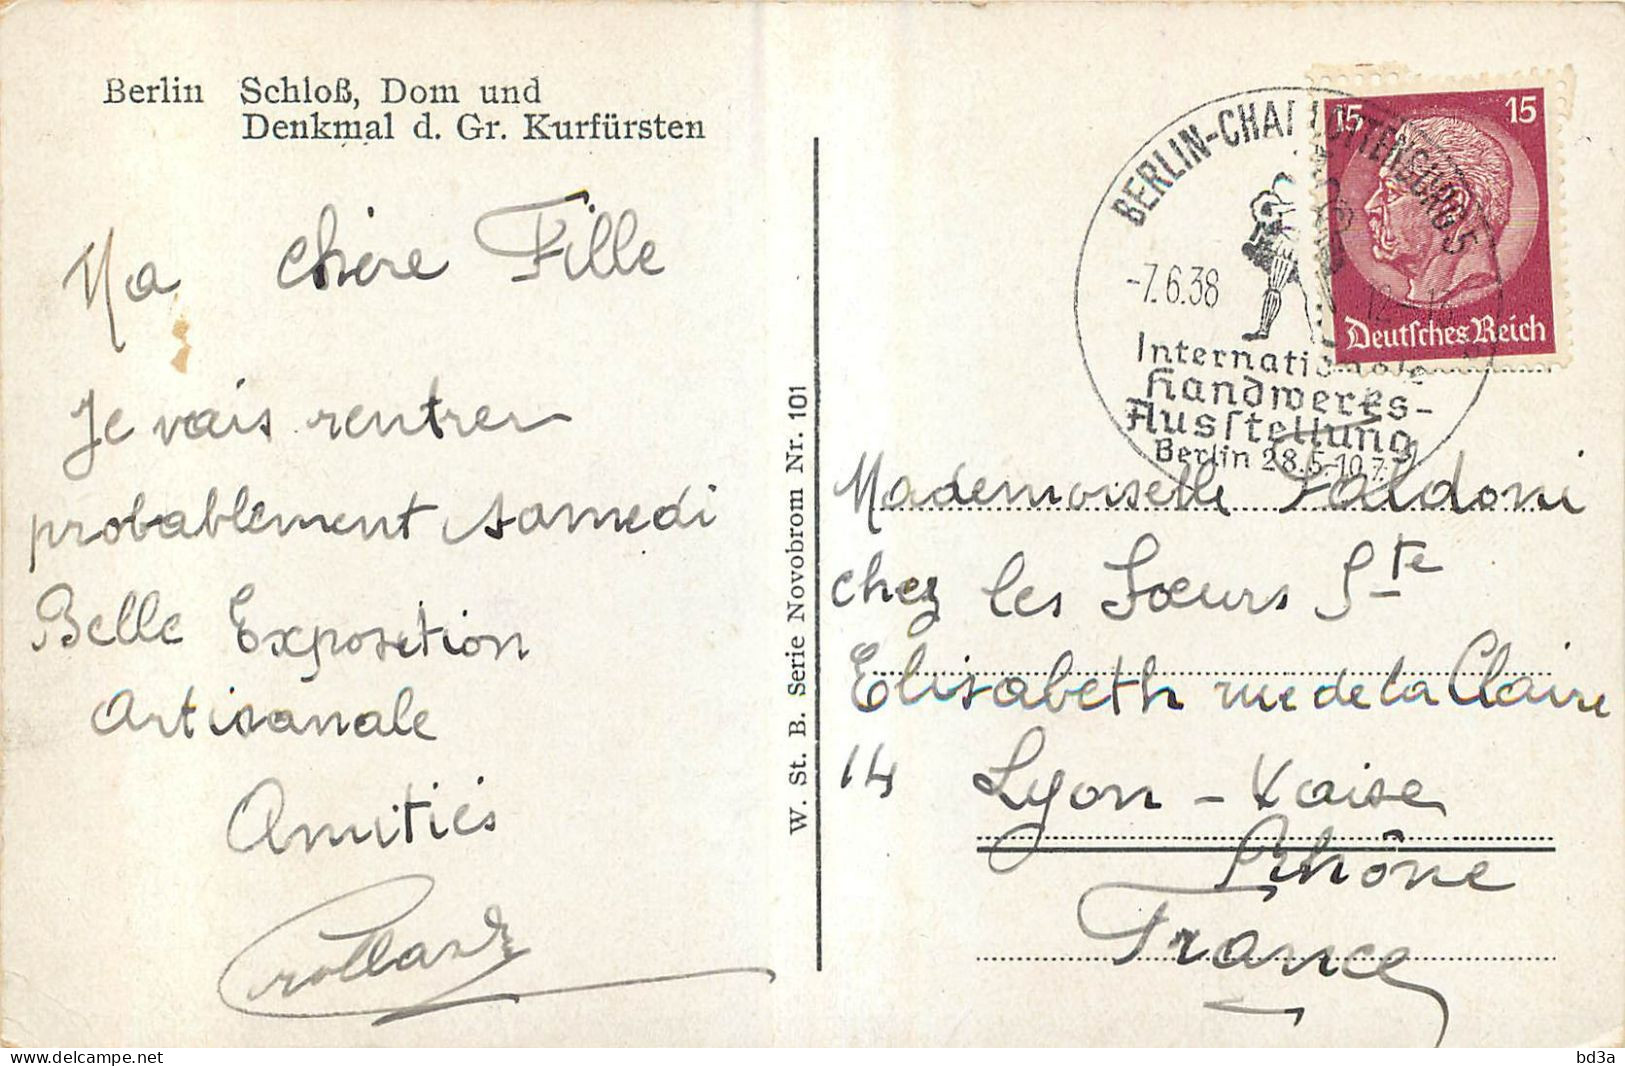 Berlin Schloß, Dom und
Denkmal d. Gr. Kurfürsten
Ma chère Fille
Je vais rentrer
probablement samedi
Belle Exposition
Artisanale
Amitiés
W. St. B. Serie Novobrom Nr. 101
BERLIN-CHARLOTTENBURG 5
-7.6.38
Internationale
Handwerks-
Ausstellung
Berlin 28.5.-10.7.
15 15
Deutsches Reich
Mademoiselle Faldoni
chez les Sœurs Ste
Elisabeth rue de la Claire
14 Lyon - Vaise
Rhône
France
delcampe.net
bd3a